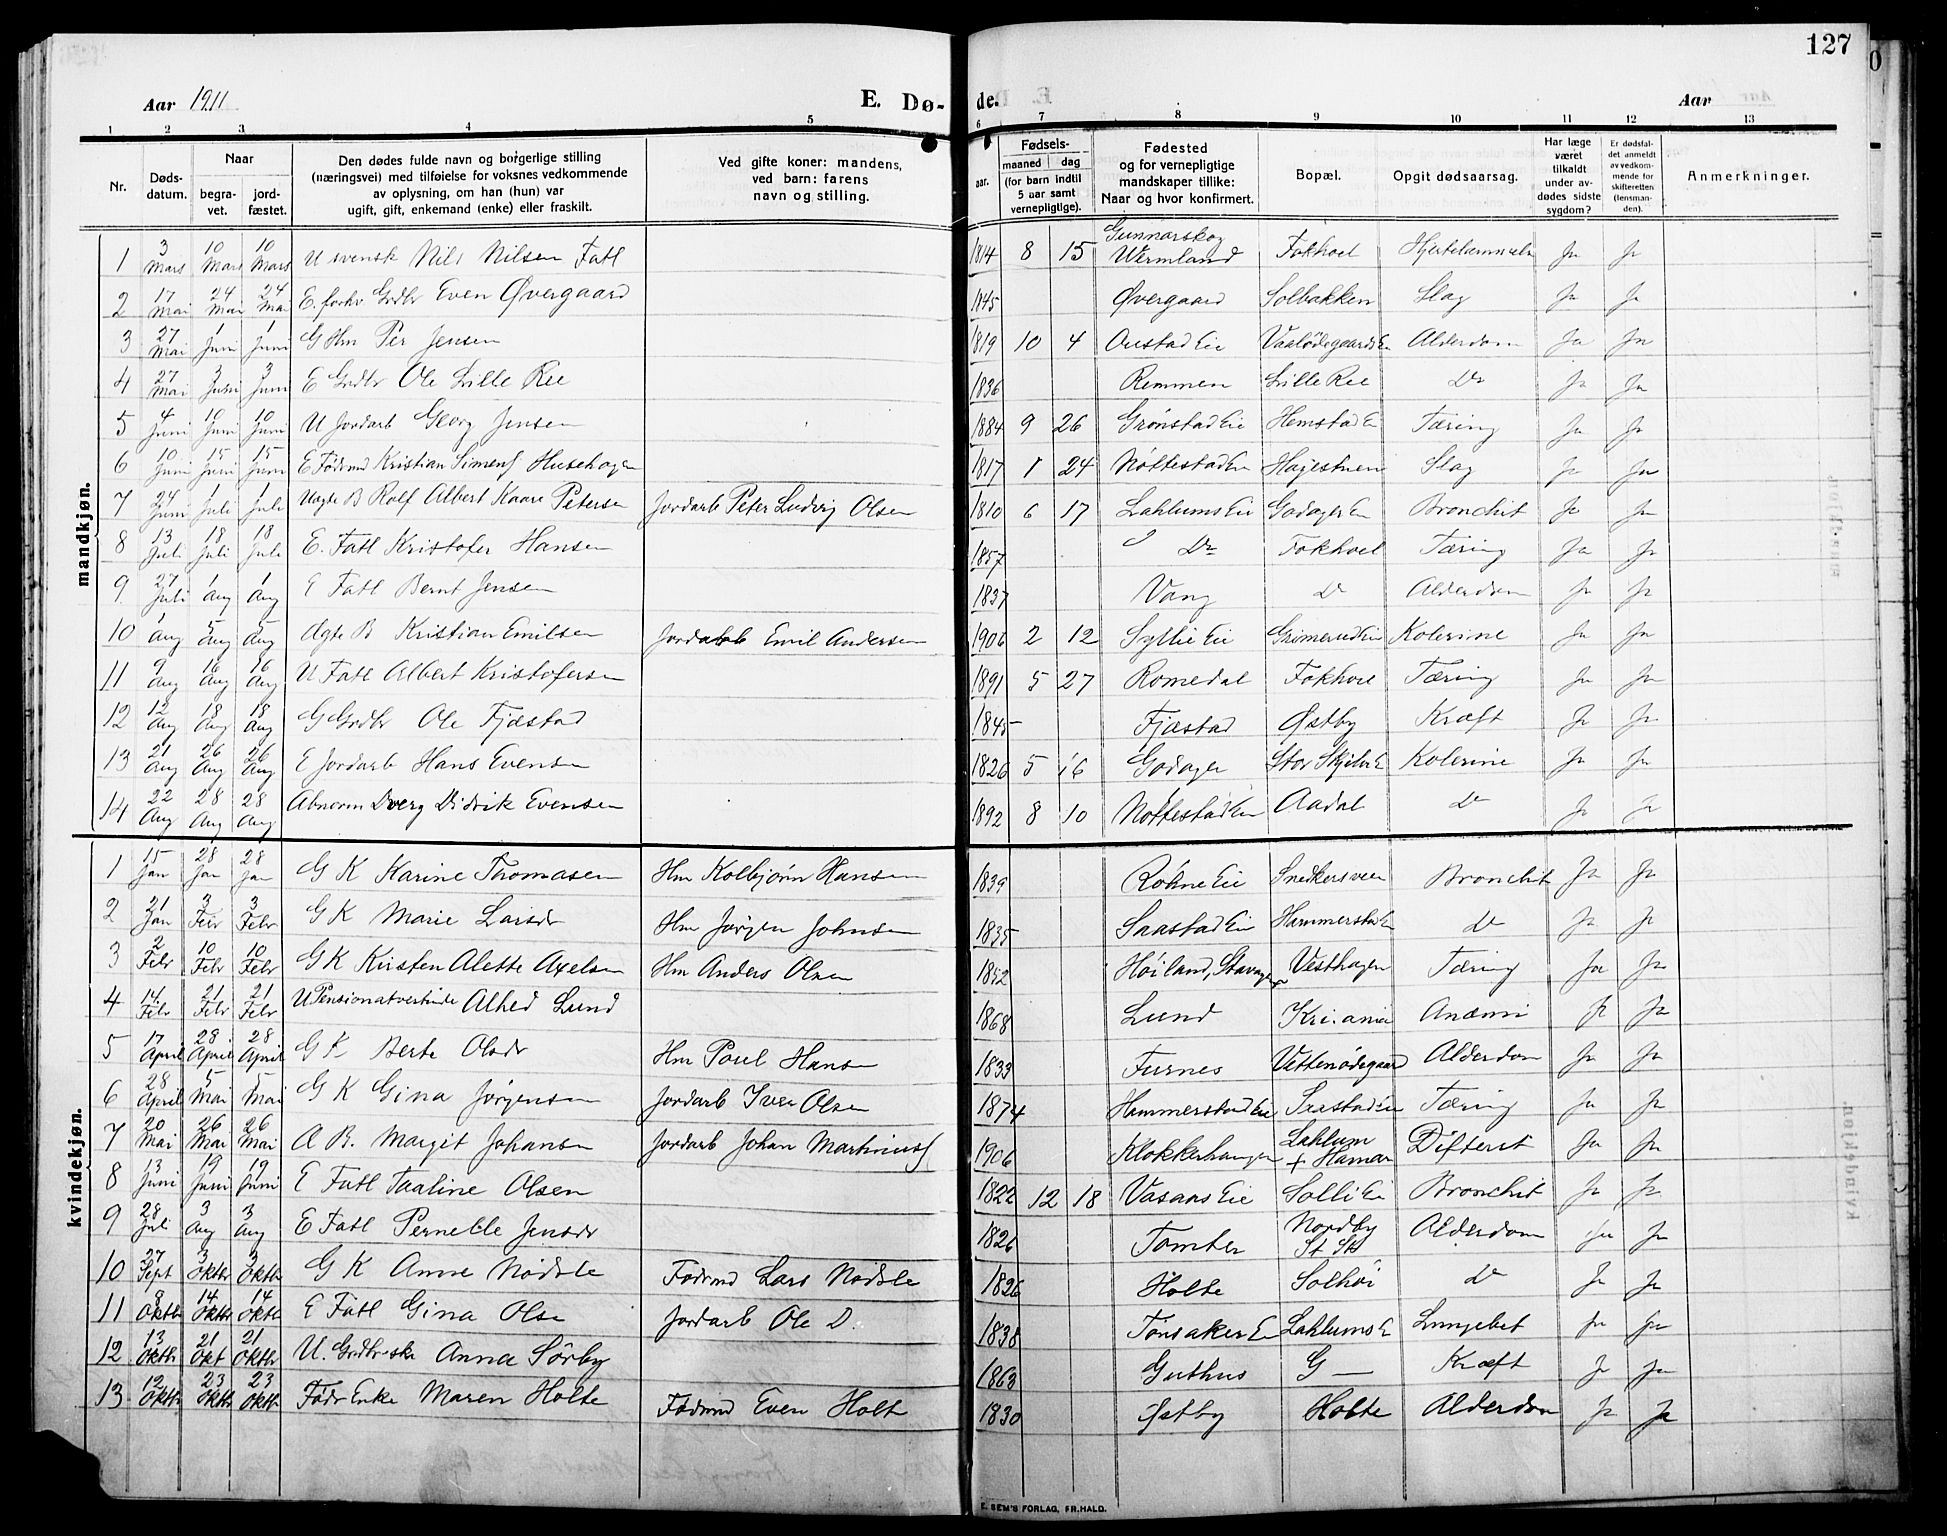 127
Aar 1911
E. Dø-
de.
Aar
1 2 3. 4 5 6 7 8 9 10 11 12 13
Nr.
Døds-
datum.
Naar
begra-
vet.
jord-
fæstet.
Den dødes fulde navn og borgerlige stilling
(næringsvei) med tilføielse for voksnes vedkommende
av oplysning, om han (hun) var
ugift, gift, enkemand (enke) eller fraskilt.
Ved gifte koner: mandens,
ved barn: farens
navn og stilling.
aar.
Fødsels-
maaned dag
(for barn indtil
5 aar samt
vernepligtige).
Fødested
og for vernepligtige
mandskaper tillike:
Naar og hvor konfirmert.
Bopæl.
Opgit dødsaarsag.
Har læge
været
tilkaldt
under av-
dødes sidste
sygdom?
Er dødsfal-
det anmeldt
av vedkom-
mende for
skifteretten
(lensman-
den).
Anmerkninger.
mandkjøn.
1 3 Mars 10 Mars 10 Mars U svensk Nils Nilsen Fatl 1814 8 15 Gunnarskog Wermland Fokhoel Ja Ja
2 17 Mai 24 Mai 24 Mai E. forhv Grdbr Even Øvergaard 1845 Øvergaard Solbakken Slag Ja Ja
3 27 Mai 1 Juni 1 Juni G Hm Per Jensen 1819 10 4 Alderdom Ja Ja
4 27 Mai 3 Juni 3 Juni E Grdbr Ole Lille Ree 1836 Remmen Lille Ree Do Ja Ja
5 4 Juni 10 Juni 10 Juni U Jordarb Georg Jensen 1884 9 26 Grønstad Eie Hemstad E Tæring Ja Ja
6 10 Juni 15 Juni 15 Juni E Fødrmd Kristian Simens Husehagen 1817 1 24 Nøttestad En Slag Ja Ja
7 24 Juni 1 Juli 1 Juli Uægte B Rolf Albert Kaare Petersen Jordarb Peter Ludvig Olsen 1810 6 17 Lahlums Eie Godager E Bronchit Ja Ja
8 13 Juli 18 Juli 18 Juli E. Fatl Kristofer Hansen 1857 Do Fokhoel Tæring Ja Ja
9 27 Juli 1 Aug 1 Aug E Fatl Bernt Jensen 1837 Vang Do Alderdom Ja Ja
10 1 Aug 5 Aug 5 Aug Ægte B Kristian Emilsen Jordarb Emil Andersen 1906 2 12 Kolerine Ja Ja
11 9 Aug 16 Aug 16 Aug U Fatl Albert Kristofersen 1891 5 27 Romedal Fokhoel Tæring Ja Ja
12 12 Aug 18 Aug 18 Aug G Grdbr Ole Fjæstad 1845 Fjæstad Østby Kræft Ja Ja
13 21 Aug 26 Aug 26 Aug E Jordarb Hans Evensen 1826 5 16 Godager Kolerine Ja Ja
14 22 Aug 28 Aug 28 Aug Abnorm Dverg Didrik Evensen 1892 8 10 Nøttestad En Aadal Do Ja Ja
kvindekjøn.
1 15 Jan 28 Jan 28 Jan G K Karine Thomasen Hm Kolbjørn Hansen 1839 Røhne Eie Snedkersveen Bronchit Ja Ja
2 21 Jan 3 Febr 3 Febr G K Marie Larsdr Hm Jørgen Johnsen 1835 Saastad Eie Hammerstad E Do Ja Ja
3 2 Febr 10 Febr 10 Febr G K Kirsten Alette Axelsen Hm Anders Olsen 1852 Høiland, Stavanger Vesthagen Tæring Ja Ja
4 14. Febr 21 Febr 21 Febr U Pensionatvertinde Alhed Lund 1868 Lund Kri.ania Anæmi Ja Ja
5 17 April 28 April 28 April G K Berte Olsdr Hm Poul Hansen 1833 Furnes Vettenødegaard Alderdom Ja Ja
6 28 April 5 Mai 5 Mai G K Gina Jørgensen Jordarb Iver Olsen 1874 Hammerstad Eie Saastad Eie Tæring Ja Ja
7 20 Mai 26 Mai 26 Mai A B. Margit Johansen Jordarb Johan Martinius 1906 Klokkerhaugen Lahlum + Hamar Difterit Ja Ja
8 13 Juni 19 Juni 19 Juni E Fatl Taaline Olsen 1822 12 18 Vasaas Eie Solli Ei Bronchit Ja Ja
9 28 Juli 3 Aug 3 Aug E Fatl Pernelle Jensdr 1826 Tomter Nordby St St Alderdom Ja Ja
10 27 Sept 3 Oktbr 3 Oktb G K Anne Nødsle Fødrmd Lars Nødsle 1826 Holte Solhøi Do Ja Ja
11 8 Oktbr 14 Oktbr 14 Oktb E Fatl Gina Olsen Jordarb Ole D. 1838 Tønsaker E Lahlums E Lungebet Ja Ja
12 13 Oktbr 21 Okt 21 Oktbr U. Grdbrske Anna Sørby 1863 Guthus G — Kræft Ja Ja
13 12 Oktbr 23 Oktbr 23 Oktbr Fødr Enke Maren Holte Fødrmd Even Holt 1830 Østby Holte Alderdom Ja Ja
E. SEM'S FORLAG, FR.HALD.